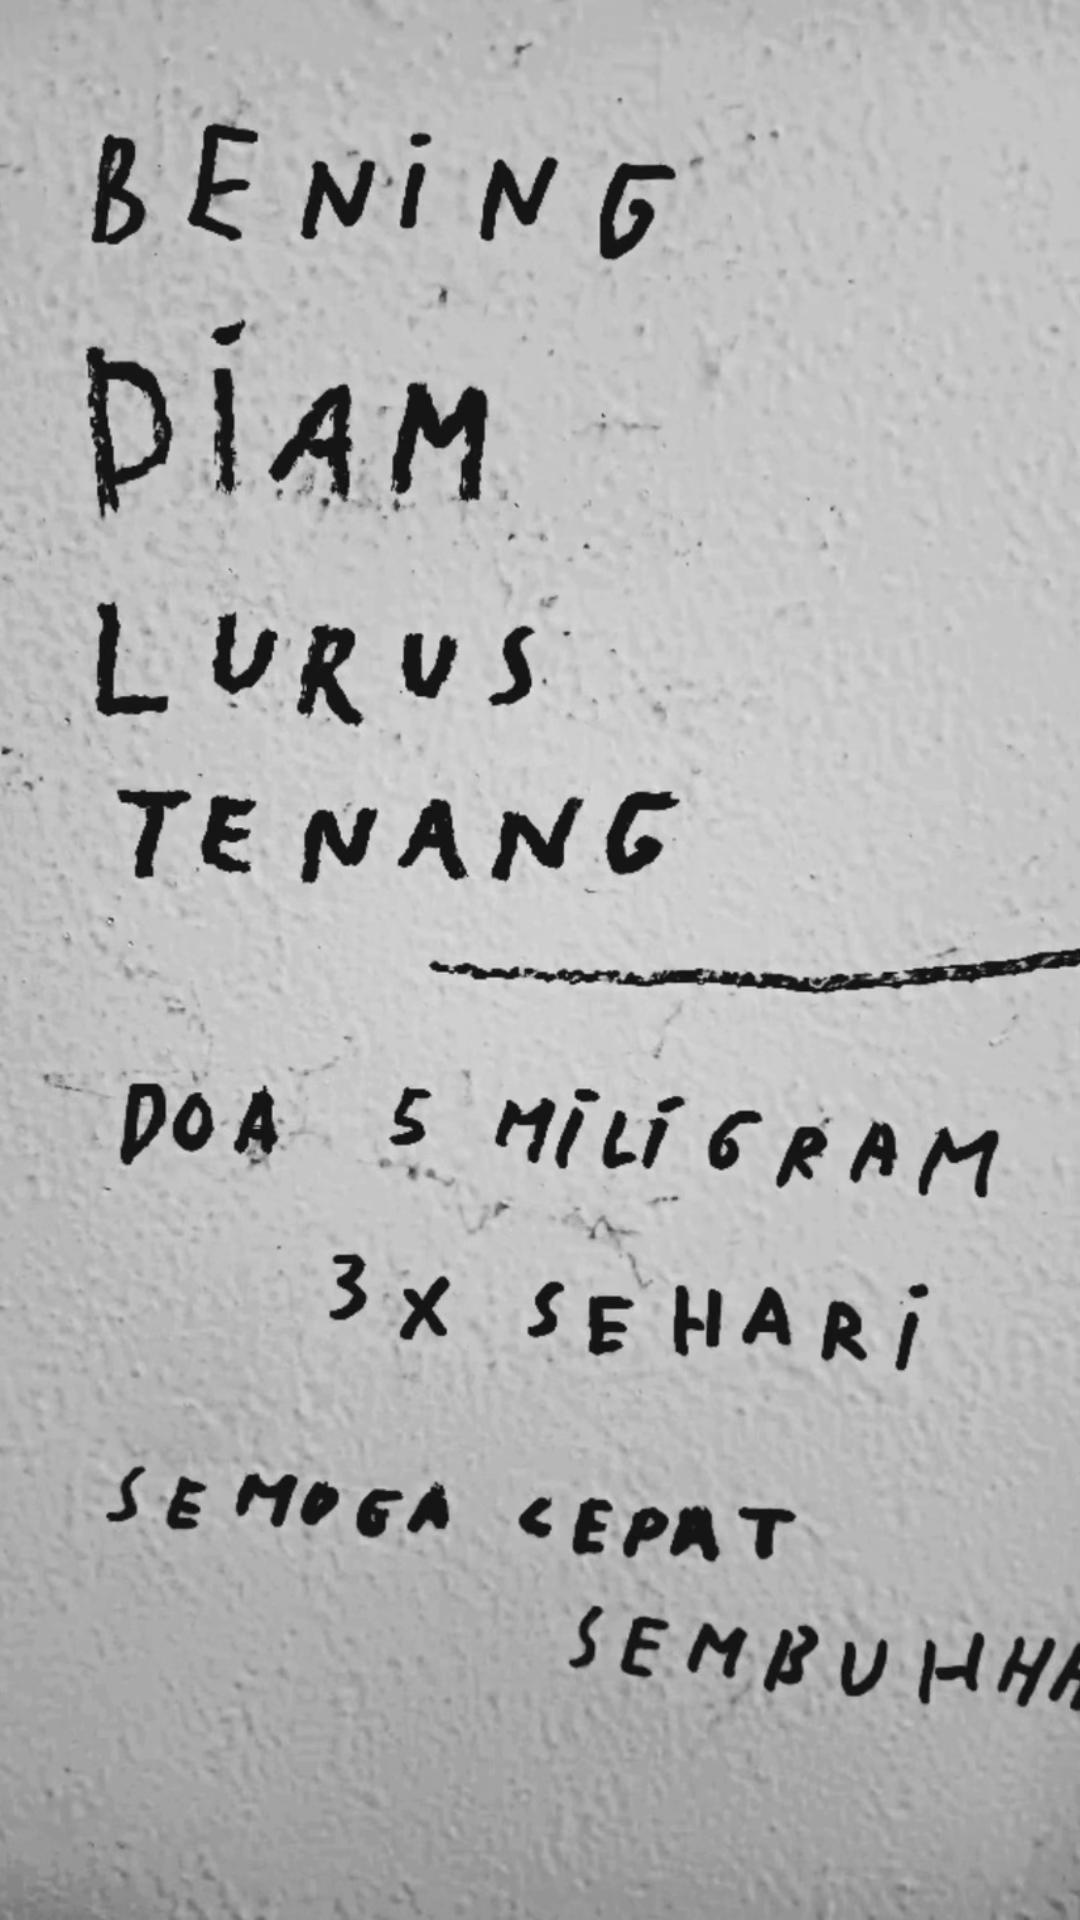 BENING
DIAM
LURUS
TENANG
DOA 5 MILIGRAM
3X SEHARI
SEMOGA CEPAT
SEMBUHHA